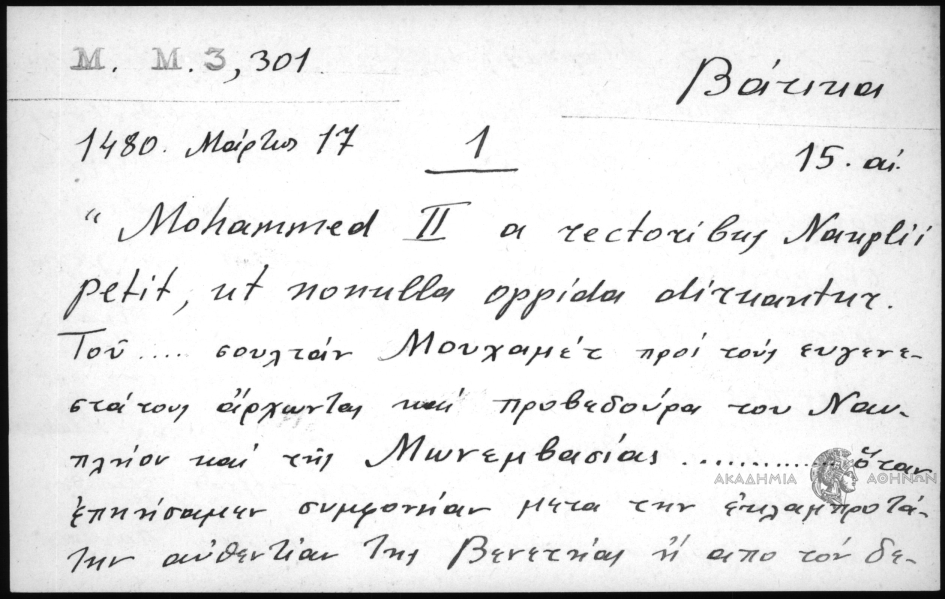 M. M. 3, 301
Βάτικα
1480. Μάρτιος 17
1
15. αἰ.
“ Mohammed II a rectoribus Nauplii
petit, ut nonulla oppida diruantur.
Τοῦ .... σουλτάν Μουχαμέτ πρὸς τοὺς ευγενε-
στάτους ἄρχωντας καὶ προβεδούρα του Ναυ-
πλήου καὶ τῆς Μωνεμβασίας .............. ὅταν
ἐπηήσαμεν συμφονήαν μετα την ἐκλαμπροτά-
την αὐθεντίαν της Βενετηίας ἡ απο τὸν δε-
ΑΚΑΔΗΜΙΑ ΑΘΗΝΩΝ